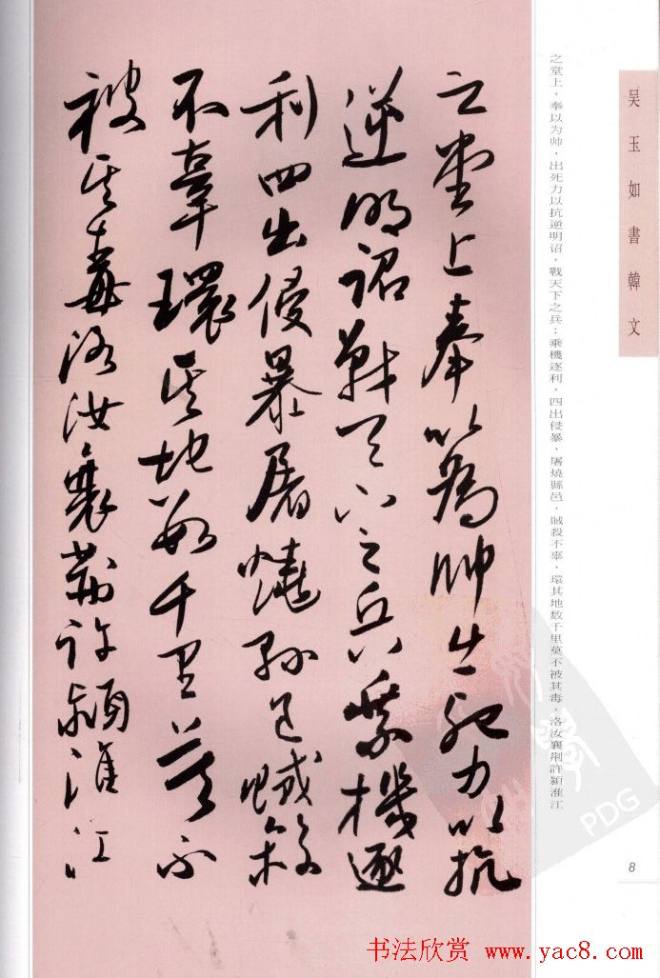 吴玉如書韓文
之堂上，奉以为帅，出死力以抗逆明诏，戰天下之兵；乘機逐利，四出侵暴，屠燒縣邑，賊殺不辜，環其地数千里莫不被其毒，洛汝襄荆許潁淮江
之堂上奉以為帥出死力以抗
逆明詔戰天下之兵乘機逐
利四出侵暴屠燒縣邑賊殺
不辜環其地數千里莫不
被其毒洛汝襄荊許潁淮江
PDG
8
书法欣赏 www.yac8.com